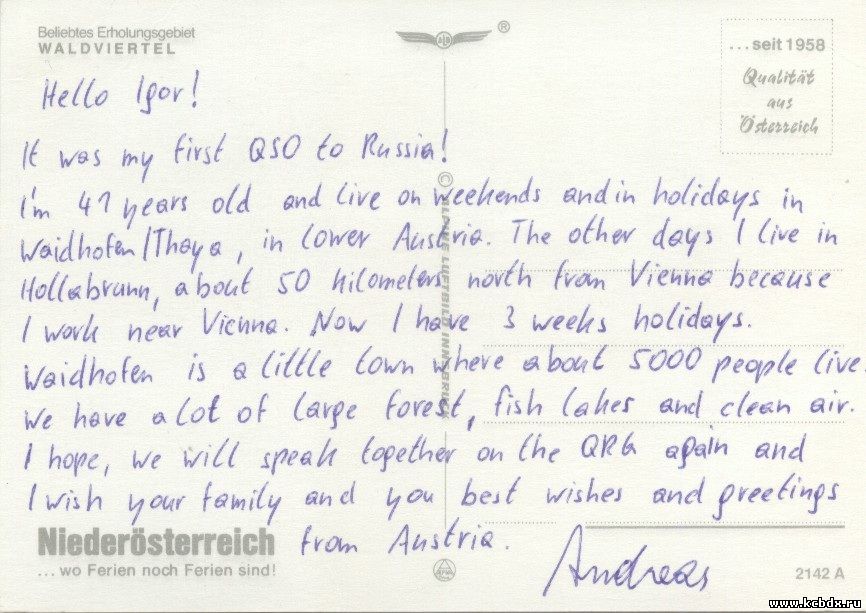 Beliebtes Erholungsgebiet
WALDVIERTEL
ALB
®
...seit 1958
Qualität
aus
Österreich
Hello Igor!
It was my first QSO to Russia!
I'm 41 years old and live on weekends and in holidays in
Waidhofen/Thaya, in lower Austria. The other days I live in
Hollabrunn, about 50 kilometers north from Vienna because
I work near Vienna. Now I have 3 weeks holidays.
Waidhofen is a little town where about 5000 people live.
We have a lot of large forest, fish lakes and clean air.
I hope, we will speak together on the QRG again and
I wish your family and you best wishes and greetings
from Austria.
Andreas
© ALPINE LUFTBILD INNSBRUCK
Niederösterreich
...wo Ferien noch Ferien sind!
2142 A
www.kcbdx.ru